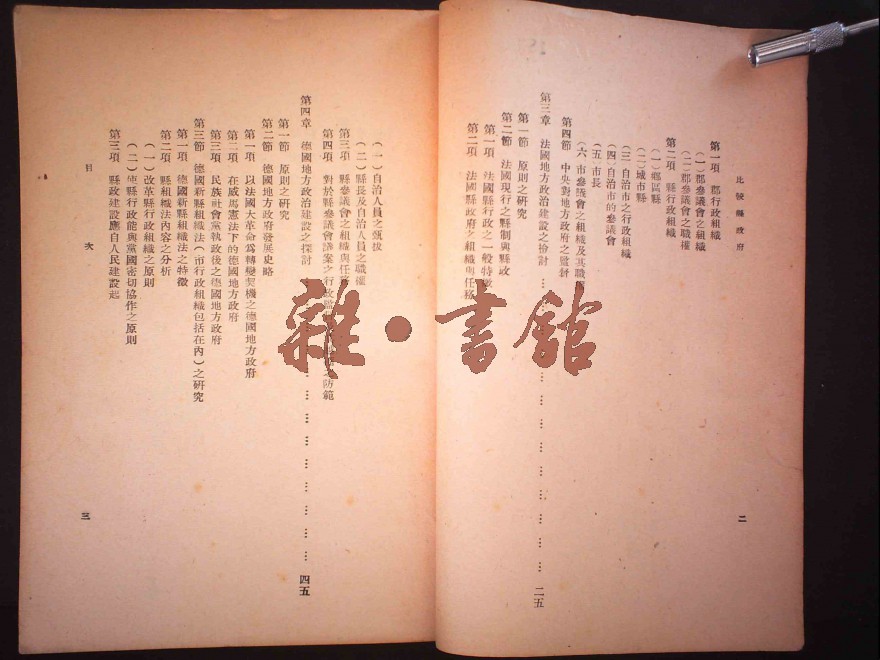 比較縣政府
二
第一項 郡行政組織
(一)郡參議會之組織
(二)郡參議會之職權
第二項 縣行政組織
(一)鄉區縣
(二)城市縣
(三)自治市之行政組織
(四)自治市的參議會
(五)市長
(六)市參議會之組織及其職
第四節 中央對地方政府之監督
第三章 法國地方政治建設之檢討 … … … … … … … … 二五
第一節 原則之研究
第二節 法國現行之縣制與縣政
第一項 法國縣行政之一般特徵
第二項 法國縣政府之組織與任務
(一)自治人員之甄拔
(二)縣長及自治人員之職權
第三項 縣參議會之組織與任務
第四項 對於縣參議會議案之行政監 之防範
第四章 德國地方政治建設之探討 … … … … … … … … 四五
第一節 原則之研究
第二節 德國地方政府發展史略
第一項 以法國大革命為轉變契機之德國地方政府
第二項 在威馬憲法下的德國地方政府
第三項 民族社會黨執政後之德國地方政府
第三節 德國新縣組織法(市行政組織包括在內)之研究
第一項 德國新縣組織法之特徵
第二項 縣組織法內容之分析
(一)改革縣行政組織之原則
(二)使縣行政能與黨國密切協作之原則
第三項 縣政建設應自人民建設起
目次
三
雜·書館